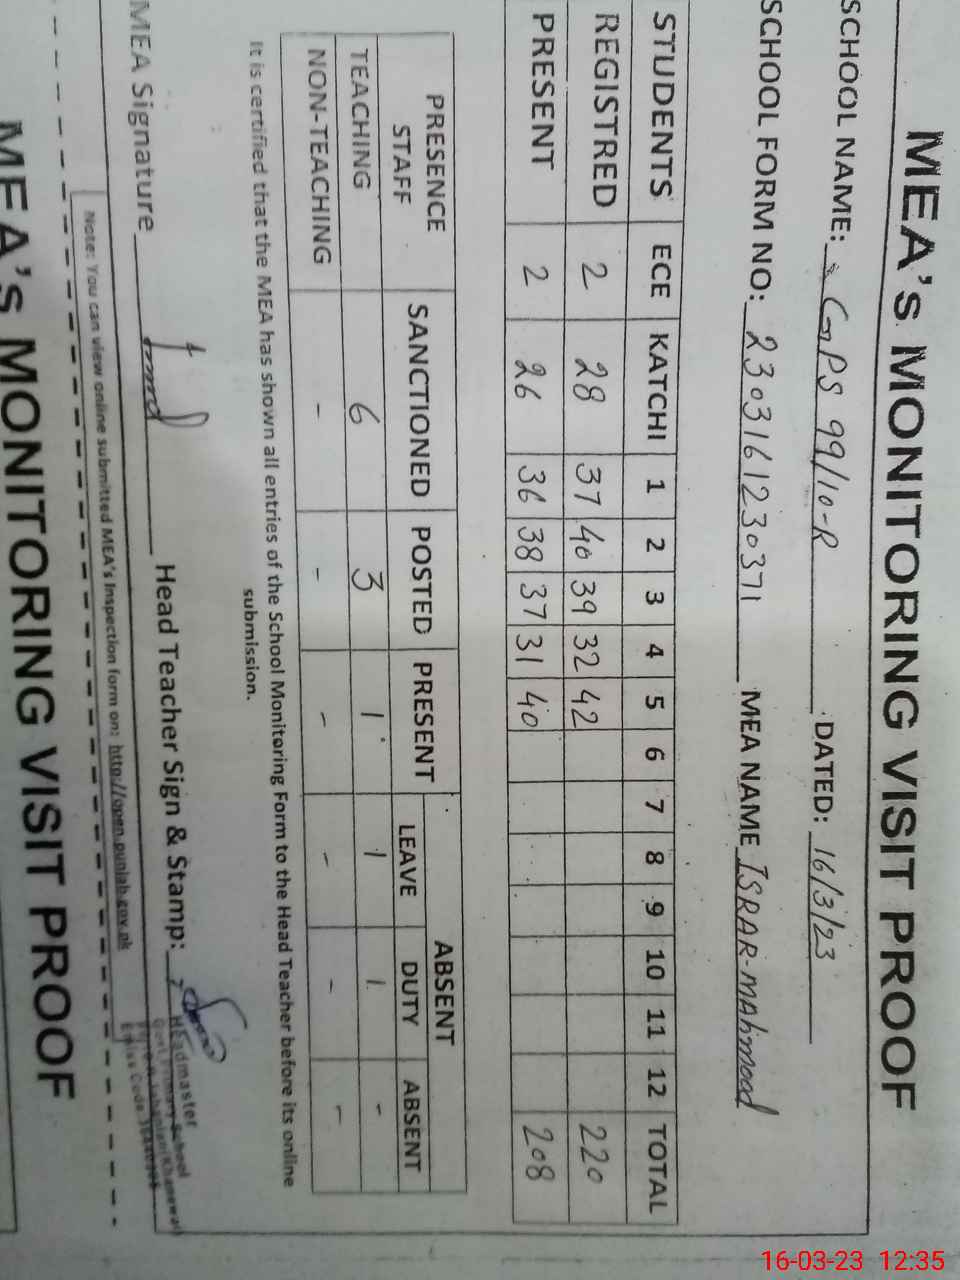 MEA's MONITORING VISIT PROOF
SCHOOL NAME: GPS 99/10-R DATED: 16/3/23
SCHOOL FORM NO: 2303161230371 MEA NAME ISRAR-MAhmood
STUDENTS ECE KATCHI 1 2 3 4 5 6 7 8 9 10 11 12 TOTAL
REGISTRED 2 28 37 40 39 32 42 220
PRESENT 2 26 36 38 37 31 40 208
PRESENCE STAFF SANCTIONED POSTED PRESENT ABSENT
LEAVE DUTY ABSENT
TEACHING 6 3 1 1 1 -
NON-TEACHING - - - - - -
It is certified that the MEA has shown all entries of the School Monitoring Form to the Head Teacher before its online
submission.
MEA Signature Head Teacher Sign & Stamp:
Headmaster
Govt. Primary School
Khanewal
Emiss Code
Note: You can view online submitted MEA's Inspection form on: http://open.punjab.gov.pk
MEA's MONITORING VISIT PROOF
16-03-23 12:35